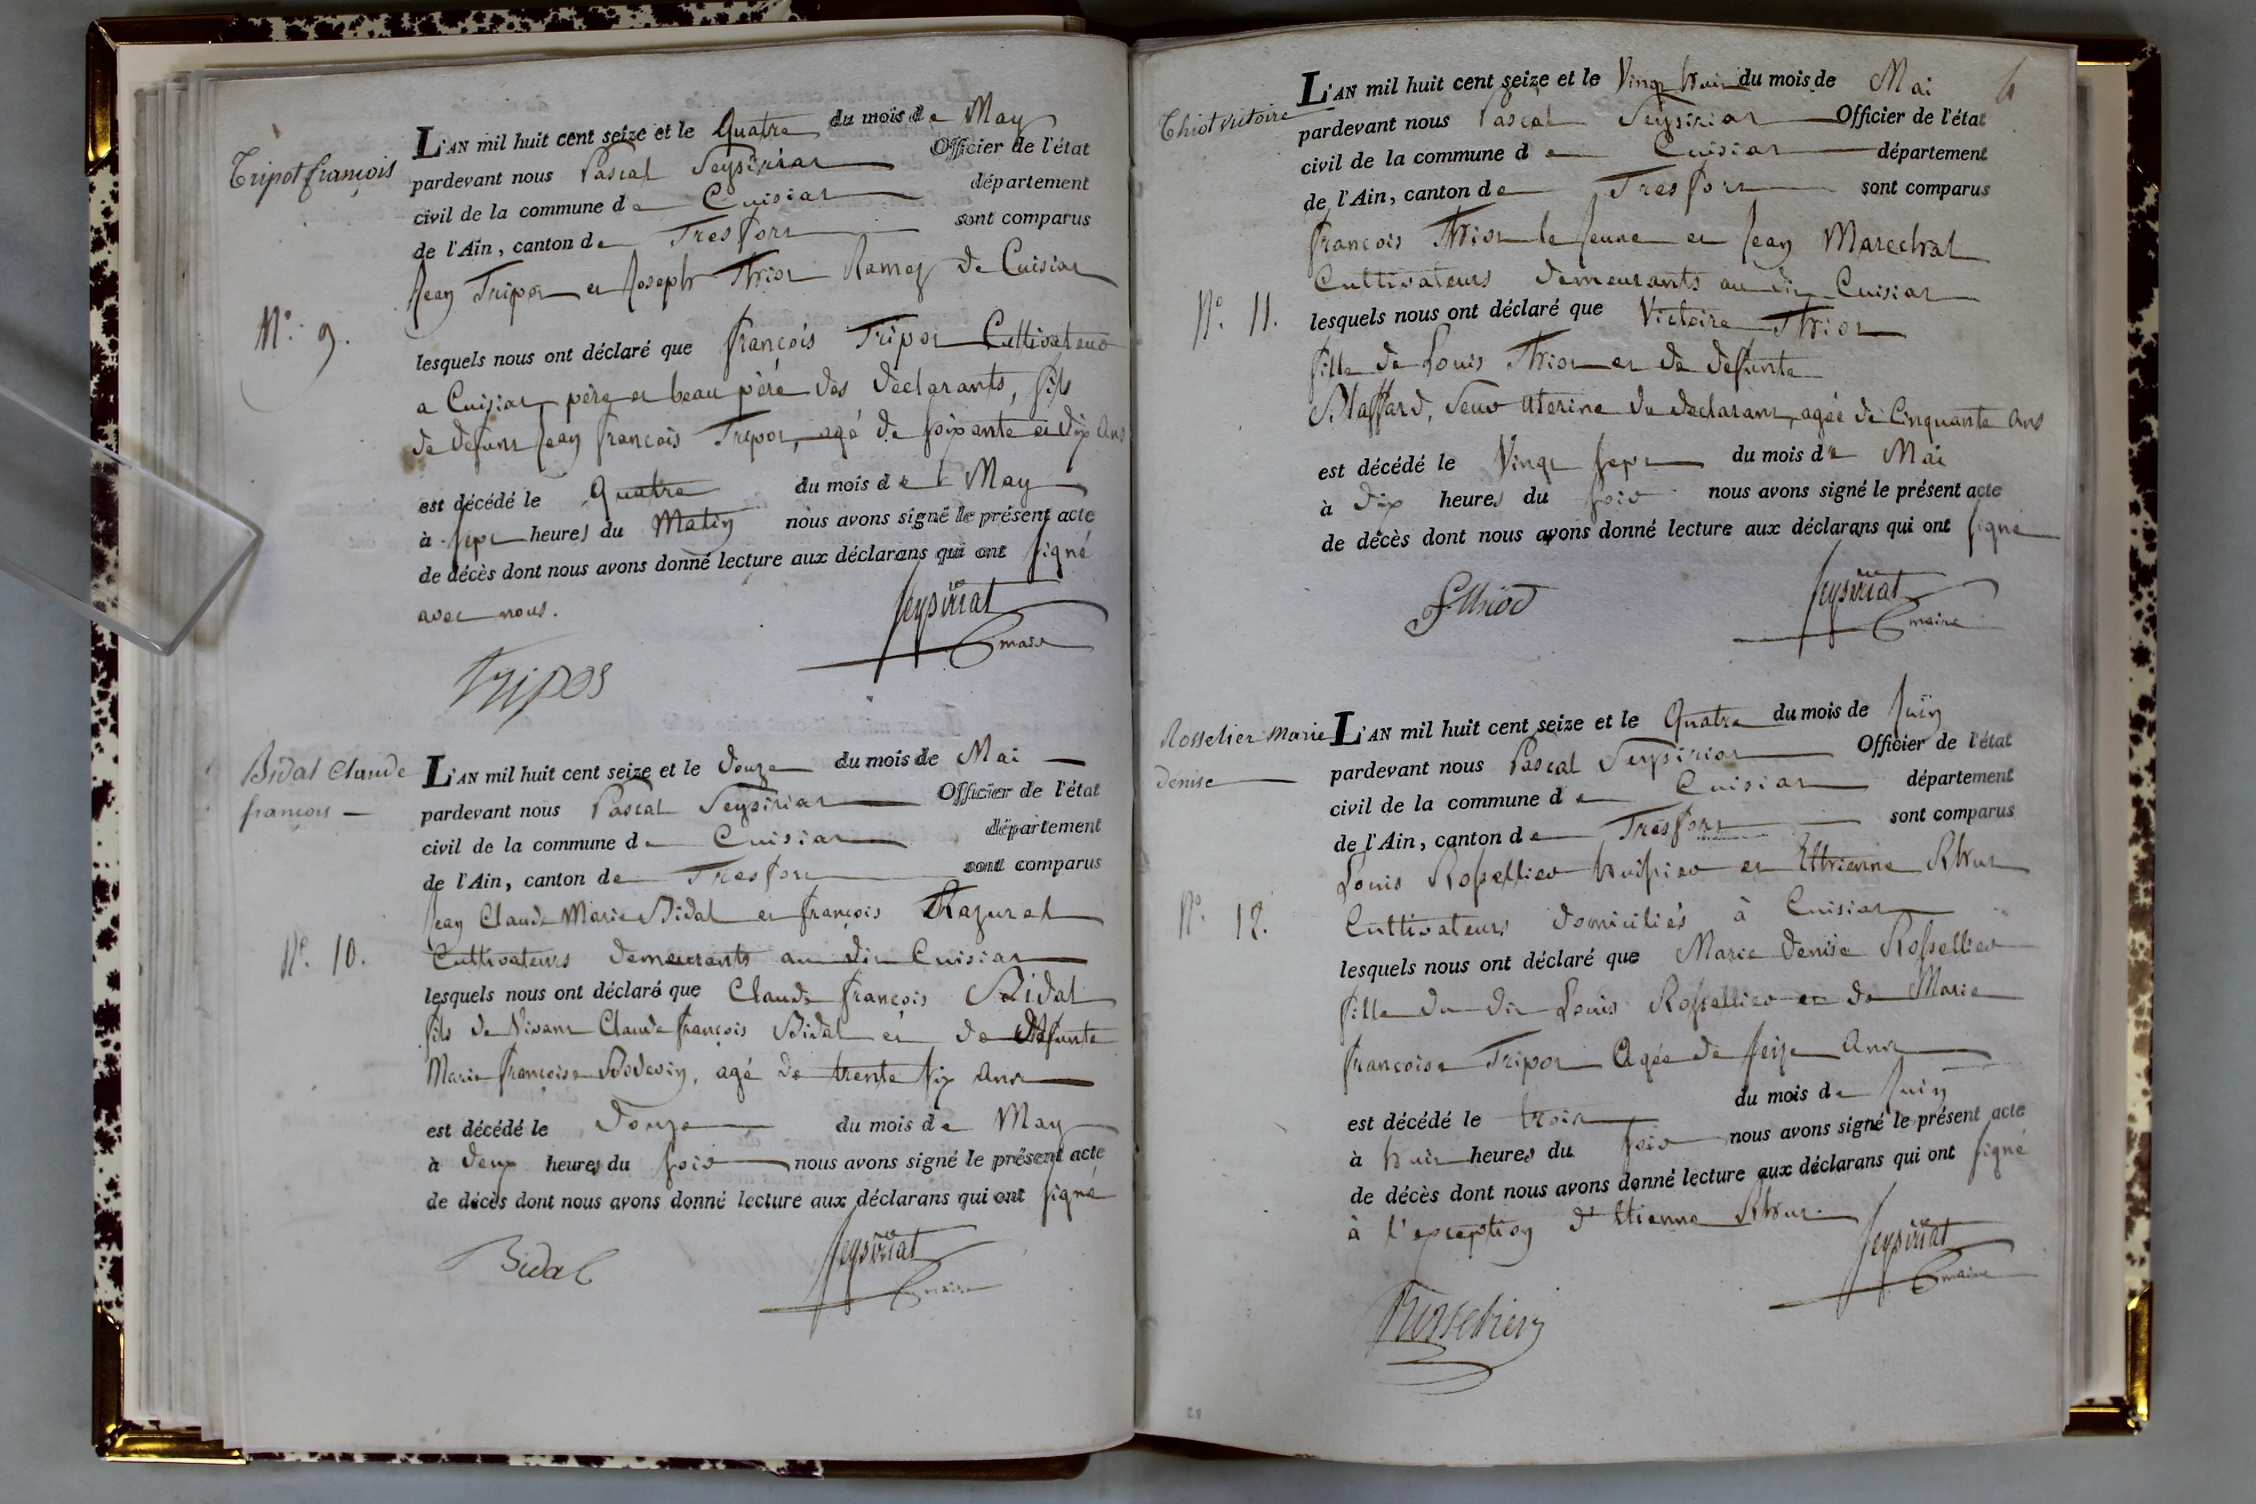 Tripot françois
N.º 9.
L'AN mil huit cent seize et le Quatre du mois de May
pardevant nous Pascal Seysiriat Officier de l'état
civil de la commune de Cuisiat département
de l'Ain, canton de Tresfort sont comparus
Jean Tripot et Joseph Thiot Ramey de Cuisiat
lesquels nous ont déclaré que françois Tripot Cultivateur
a Cuisiat père et beau père des déclarants, fils
de defunt Jean françois Tripot, agé de soixante et dix ans
est décédé le Quatre du mois de May
à sept heures du Matin nous avons signé le présent acte
de décès dont nous avons donné lecture aux déclarans qui ont signé
avec nous.
Seysiriat
maire
Tripos
Bidal Claude
françois
N.º 10.
L'AN mil huit cent seize et le Douze du mois de Mai
pardevant nous Pascal Seysiriat Officier de l'état
civil de la commune de Cuisiat département
de l'Ain, canton de Tresfort sont comparus
Jean Claude Marie Bidal et françois Razurel
Cultivateurs demeurants au dit Cuisiat
lesquels nous ont déclaré que Claude françois Bidal
fils de Vivant Claude françois Bidal et de defunte
Marie françoise, agé de trente six ans
est décédé le Douze du mois de May
à deux heures du soir nous avons signé le présent acte
de décès dont nous avons donné lecture aux déclarans qui ont signé
Seysiriat
maire
Bidal
4
Thiot victoire
N.º 11.
L'AN mil huit cent seize et le Vingt huit du mois de Mai
pardevant nous Pascal Seysiriat Officier de l'état
civil de la commune de Cuisiat département
de l'Ain, canton de Tresfort sont comparus
françois Thiot le Jeune et Jean Marechal
Cultivateurs demeurants au dit Cuisiat
lesquels nous ont déclaré que Victoire Thiot
fille de Louis Thiot et de defunte
Blassard, seur uterine du declarant, agée de Cinquante ans
est décédé le Vingt sept du mois de Mai
à dix heures du soir nous avons signé le présent acte
de décès dont nous avons donné lecture aux déclarans qui ont signé
f thiot
Seysiriat
maire
Rosselier marie
denise
N.º 12.
L'AN mil huit cent seize et le Quatre du mois de Juin
pardevant nous Pascal Seysiriat Officier de l'état
civil de la commune de Cuisiat département
de l'Ain, canton de Tresfort sont comparus
Louis Rossellier huissier et Ethienne
Cultivateurs domiciliés à Cuisiat
lesquels nous ont déclaré que Marie denise Rossellier
fille du dit Louis Rossellier et de Marie
françoise Tripot Agée de seize ans
est décédé le trois du mois de Juin
à huit heures du soir nous avons signé le présent acte
de décès dont nous avons donné lecture aux déclarans qui ont signé
à l'exception d'Etienne
Seysiriat
maire